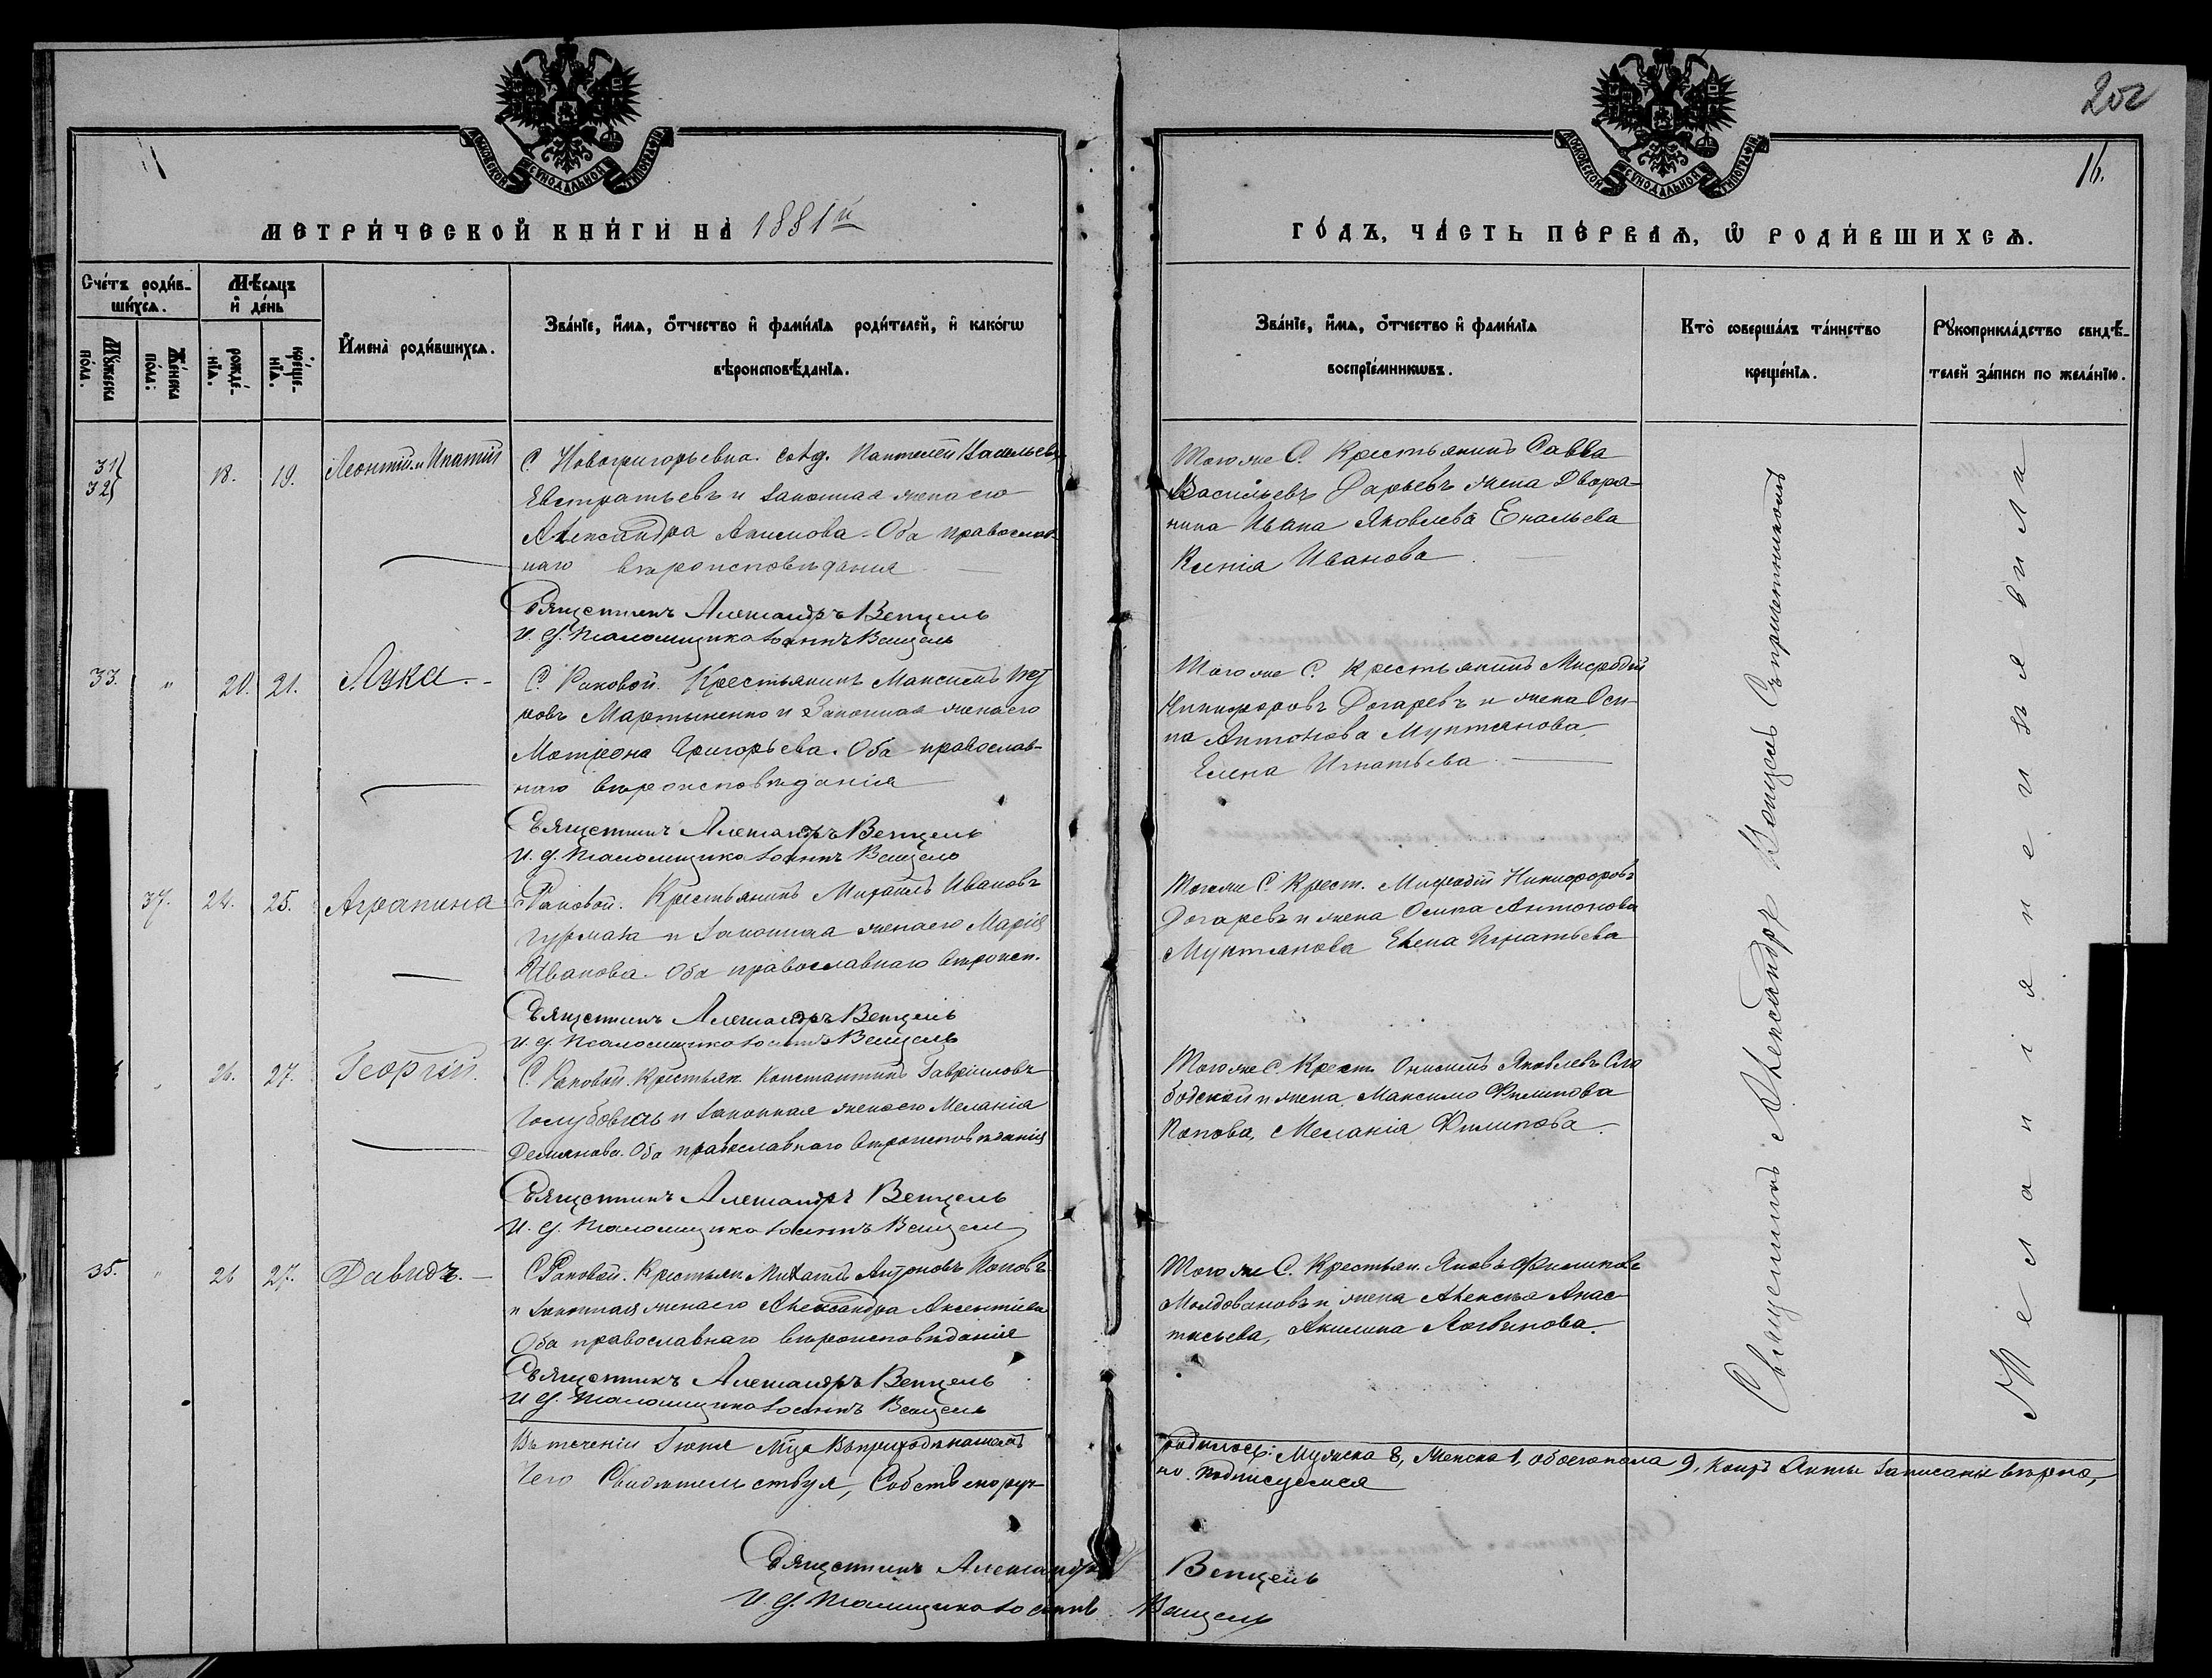 202
16.
МОСКОВСКОЙ СѴНОДАЛЬНОЙ ТИПОГРАФІИ
МОСКОВСКОЙ СѴНОДАЛЬНОЙ ТИПОГРАФІИ
МЕТРИ́ЧЕСКОЙ КНИ́ГИ НА̀ 1881й
ГО́ДЪ, ЧА́СТЬ ПЕ́РВАѦ, Ѡ РОДИ́ВШИХСѦ.
Сче́тъ роди́в-
ши́хсѧ.
Мꙋ́жеска по́ла.
Же́нска по́ла:
Мѣ́сѧцъ
и҆ де́нь
рожде́-
нїѧ.
креще-
нїѧ.
И҆мена̀ роди́вшихсѧ.
Зва́нїе, и҆́мѧ, ѻ҆́тчество и҆ фами́лїѧ роди́телей, и҆ како́гѡ
вѣроисповѣ́данїѧ.
Зва́нїе, и҆́мѧ, ѻ҆́тчество и҆ фами́лїѧ
воспрїе́мникѡвъ.
Кто̀ соверша́лъ та́инство
креще́нїѧ.
Рꙋкоприкла́дство свидѣ́-
телей за́писи по жела́нїю.
31
32
18.
19.
Леонтій и Ипатій
С. Новогригорьевка. Пантелей Васильевъ
Евстратьевъ и законная жена его
Александра Акимова. Оба православ-
наго вѣроисповѣданія
Священникъ Александръ Венцель
И. д. Псаломщика Іоаннъ Венцель
Тогоже С. Крестьянинъ Савва
Васильевъ Дарьевъ жена Дворя-
нина Ивана Яковлева
Ксенія Иванова
33.
"
20.
21.
Лука.
С. Раковой. Крестьянинъ Максимъ Пет
ровъ Мартыненко и Законная жена его
Матрона Григорьева. Оба православ-
наго вѣроисповѣданія
Священникъ Александръ Венцель
И. д. Псаломщика Іоаннъ Венцель
Тогоже С. Крестьянинъ Мефодій
Никифоровъ Догаревъ и жена Оси-
па Антонова Мунтянова,
Елена Игнатьева
37.
24.
25.
Агрипина
С. Раковой. Крестьянинъ Михаилъ Ивановъ
и Законная жена его Марія
Иванова. Оба православнаго вѣроисп.
Священникъ Александръ Венцель
И. д. Псаломщика Іоаннъ Венцель
Тогоже С. Крест. Мефодій Никифоровъ
Догаревъ и жена Осипа Антонова
Мунтянова Елена Игнатьева
"
26.
27.
Георгій.
С. Раковой. Крестьян. Константинъ Гавриловъ
и Законная жена его Меланія
Демьянова. Оба православнаго вѣроисповѣданія
Священникъ Александръ Венцель
И. д. Псаломщика Іоаннъ Венцель
Тогоже С. Крест. Онисимъ Яковлевъ Сло
бодской и жена Максима Филипова
Попова, Меланія Филипова.
35.
"
26
27.
Давидъ.
С. Раковой. Крестьян. Михаилъ Антоновъ Поповъ
и Законная жена его Александра Аксентіева
Оба православнаго вѣроисповѣданія
Священникъ Александръ Венцель
И. д. Псаломщика Іоаннъ Венцель
Тогоже С. Крестьян. Яковъ Филипов
Молдовановъ и жена Алексѣя Анас-
тасьева, Акилина Логвинова.
Священникъ Александръ Венцель Съ причетникомъ
Желанія не изъявили
Въ теченіи Іюня Мца въ приходѣ нашемъ родилось: Мужеска 8, Женска 1, обоего пола 9, коихъ Акты Записаны вѣрно,
Чего Свидѣтельствуя, Собственоруч- но подписуемся
Священникъ Александръ Венцель
И. д. Псаломщика Іоаннъ Венцель